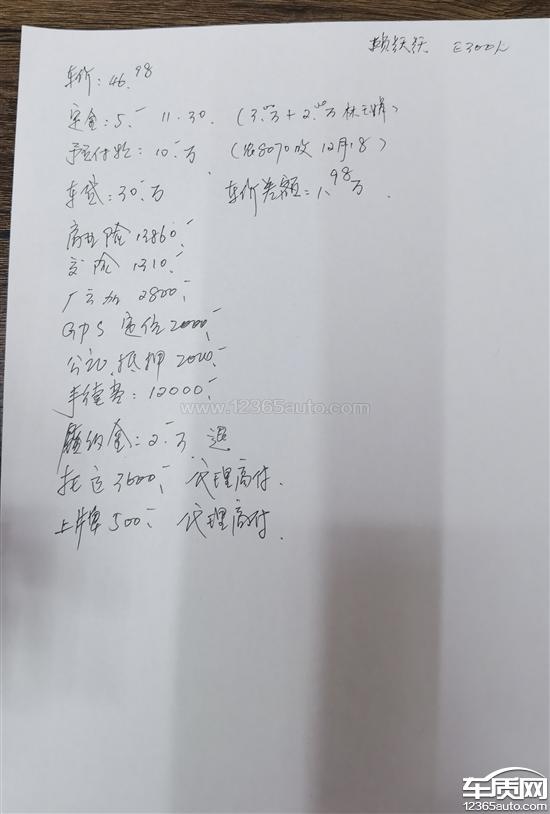 赖跃跃 E300L
车价：46.98
定金：5.- 11.30. (3.万+2.万林)
预付款：10.-万 (农8070收 12月18)
车贷：30.-万 车价差额=1.98万.
商业险 13860.-
交险 1310.-
厂 2800.-
GPS定位 2000.-
公证.抵押 2000.-
手续费：12000.-
www.12365auto.com
履约金：2.-万.退
托运 3600.- 代理商付.
上牌 500.- 代理商付.
车质网
12365auto.com